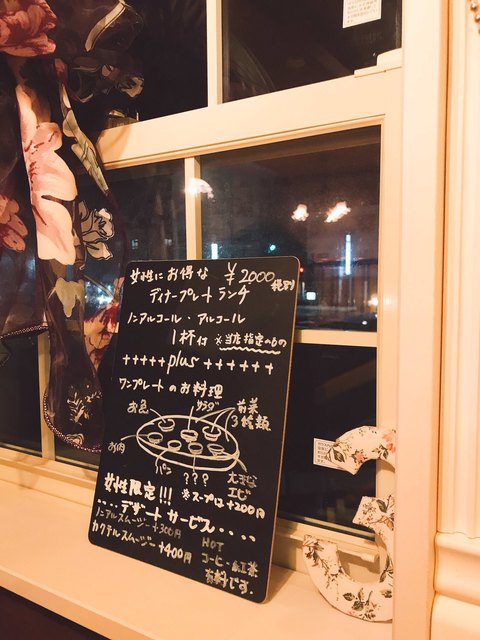 女性にお得な ¥2000 税別
ディナープレートランチ
ノンアルコール・アルコール
1杯付 ※当店指定のもの
+++++plus++++++
ワンプレートのお料理
お魚 サラダ 前菜
3種類
お肉 パン ??? 大きな
エビ
女性限定!!! ※スープは+200円
・・・・デザートサービス・・・・
ノンアルスムージー+300円 HOT
カクテルスムージー+400円 コーヒー&紅茶
有料です.